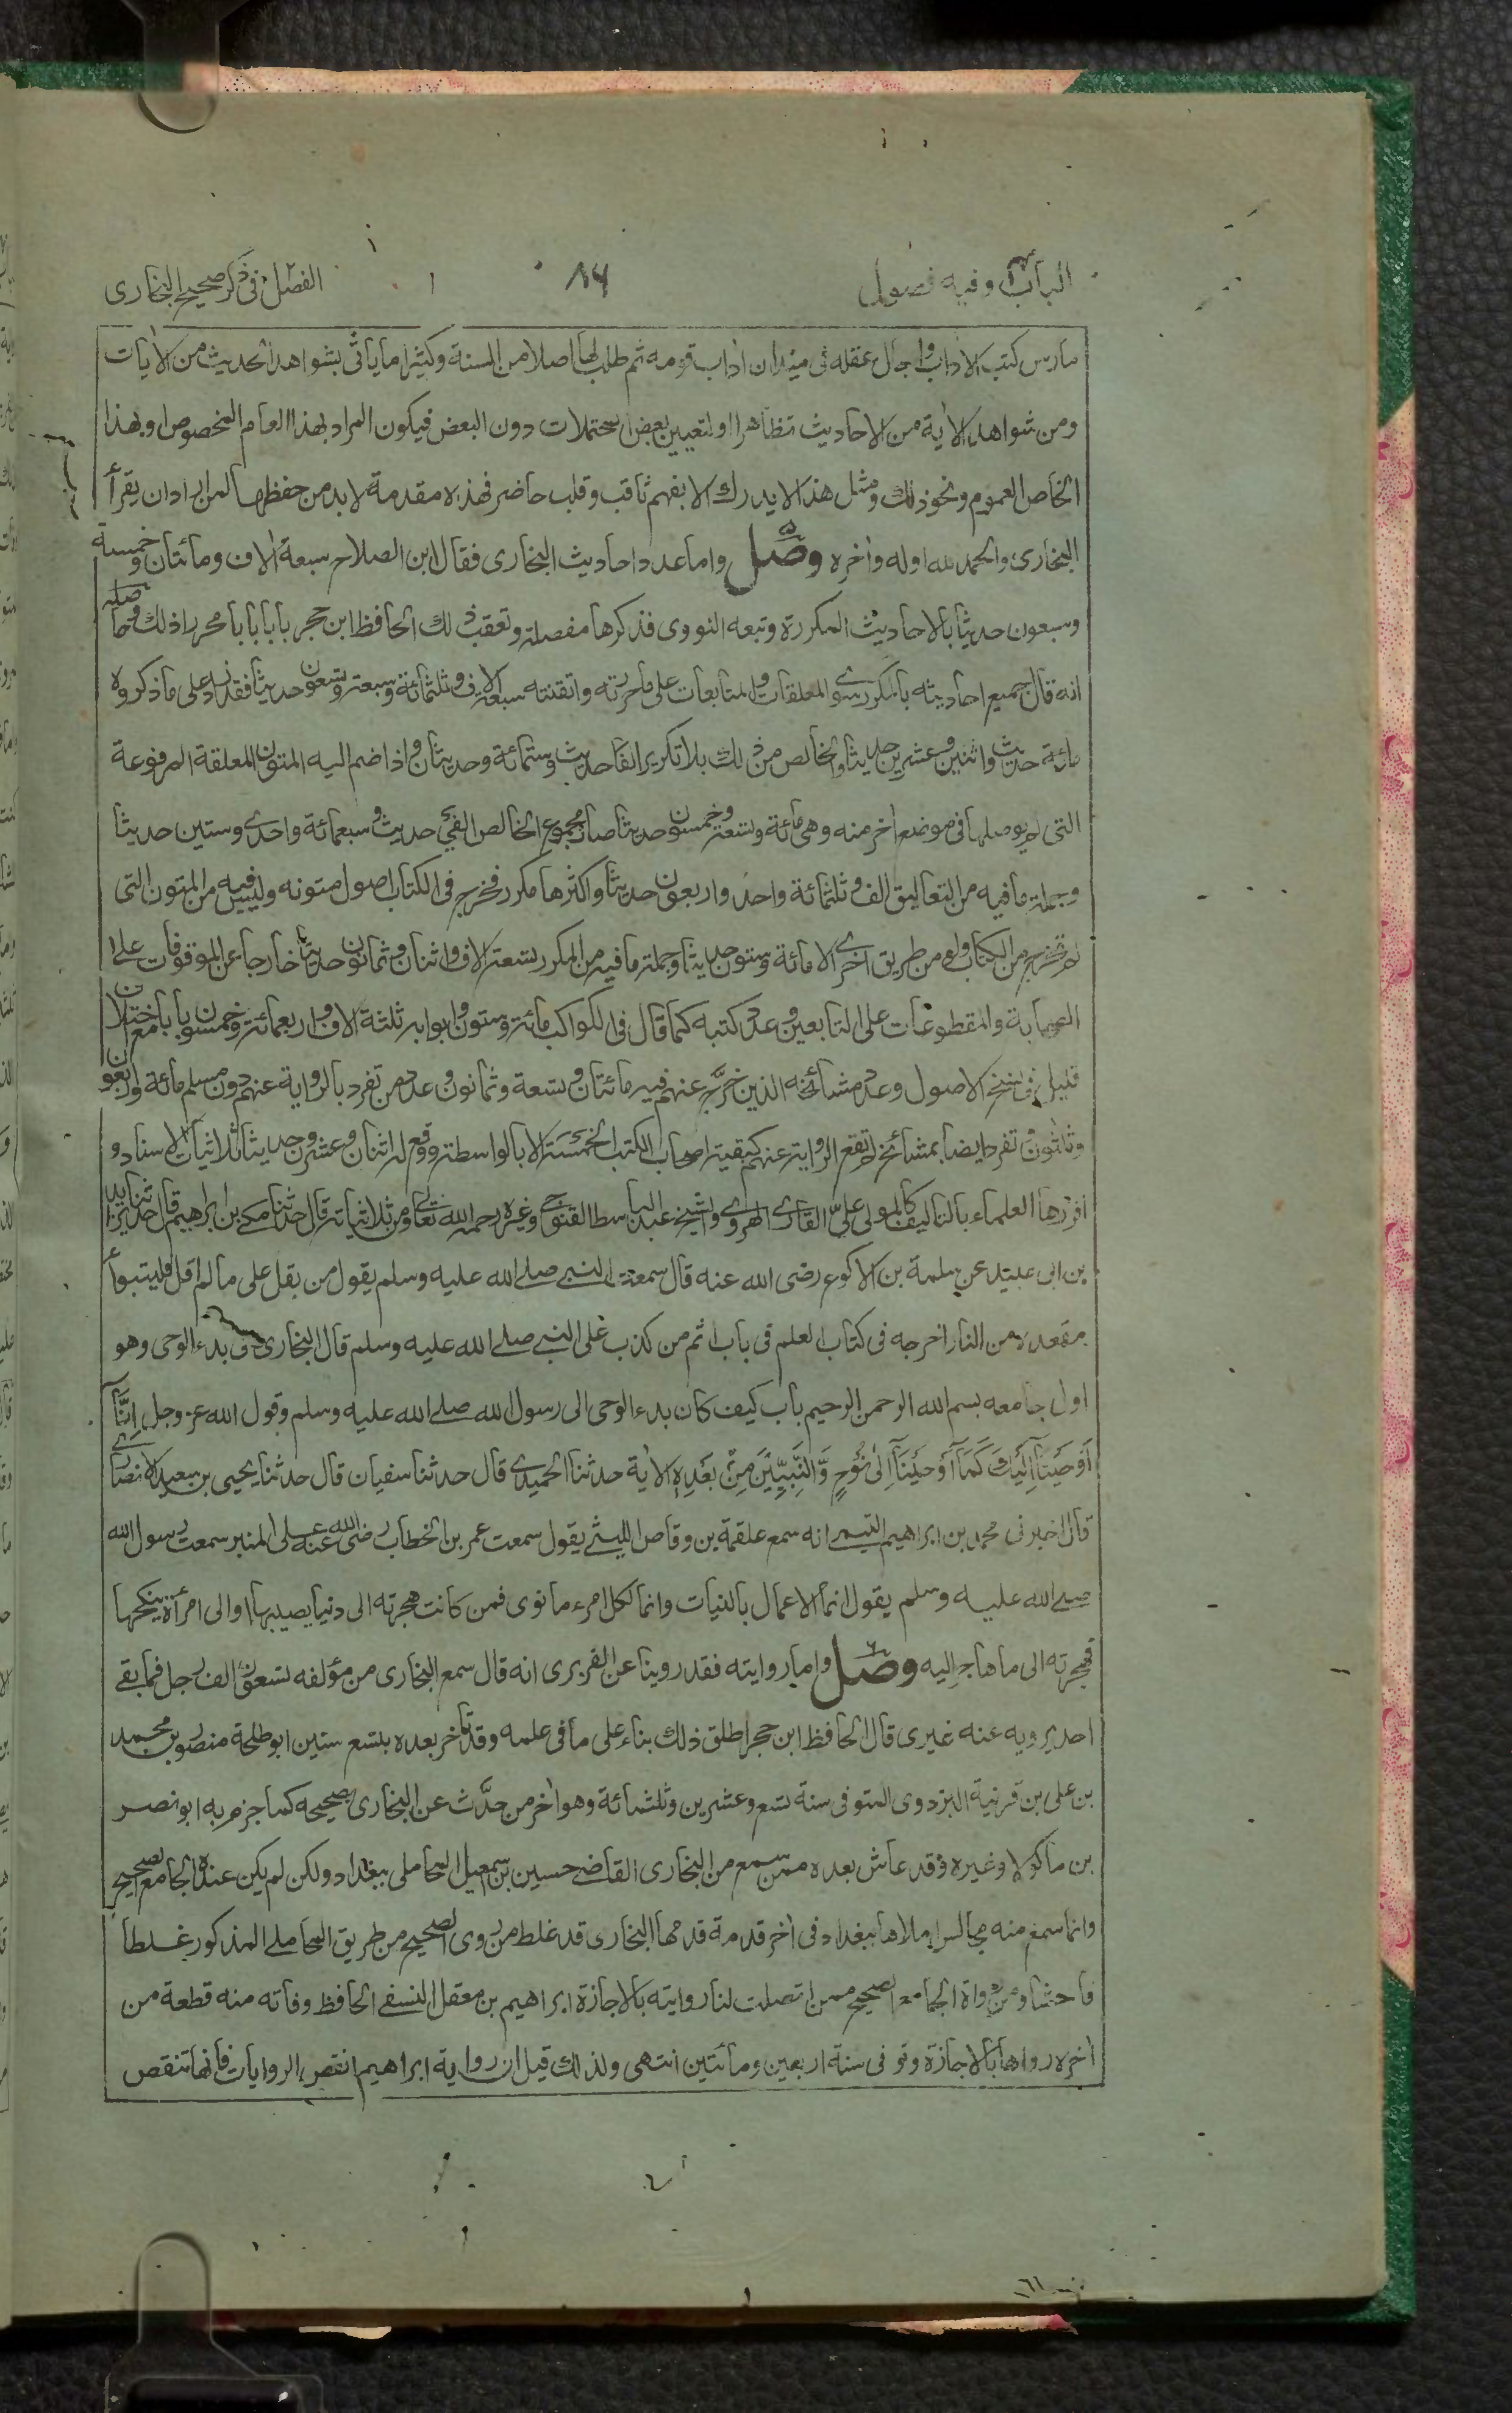 الباب وفيه فصول
٨٦
الفصل في ذكر صحيح البخاري
مارس كتب الآداب واجال عقله في ميدان آداب قومه ثم طلب لها اصلا من السنة وكثيرا ما يأتي بشواهد الحديث من الآيات
ومن شواهد الآية من الاحاديث تظاهرا اولتعيين بعض المحتملات دون البعض فيكون المراد بهذا العام المخصوص او بهذا
الخاص العموم ونحو ذلك ومثل هذا لا يدرك الا بفهم ثاقب وقلب حاضر فهذه مقدمة لا بد من حفظها لمن اراد ان يقرأ
البخاري والحمد لله اوله وآخره وصل واما عدد احاديث البخاري فقال ابن الصلاح سبعة آلاف ومائتان وخمسة
وسبعون حديثا بالاحاديث المكررة وتبعه النووي فذكرها مفصلة وتعقب ذلك الحافظ ابن حجر بابا بابا محررا ذلك وحاصله
انه قال جميع احاديثه بالمكرر سوى المعلقات والمتابعات على ما حررته واتقنته سبعة آلاف وثلثمائة وسبعة وتسعون حديثا فقد زاد على ما ذكروه
مائة حديث واثنين وعشرين حديثا والخالص من ذلك بلا تكرير الفا حديث وستمائة وحديثان واذا ضم اليه المتون المعلقة المرفوعة
التي لم يوصلها في موضع آخر منه وهي مائة وتسعة وخمسون حديثا صار مجموع الخالص الفي حديث وسبعمائة واحدى وستين حديثا
وجملة ما فيه من التعاليق الف وثلثمائة واحد واربعون حديثا واكثرها مكرر مخرج في الكتاب اصول متونه وليس فيه من المتون التي
لم تخرج من الكتاب ولو من طريق اخرى الا مائة وستون حديثا وجملة ما فيه من المكرر تسعة آلاف واثنان وثمانون حديثا خارجا عن الموقوفات على
الصحابة والمقطوعات على التابعين وعدد كتبه كما قال في الكواكب مائة وستون وابوابه ثلثة آلاف واربعمائة وخمسون بابا مع اختلاف
قليل في نسخ الاصول وعدد مشائخه الذين خرّج عنهم فيه مائتان وتسعة وثمانون وعدد من تفرد بالرواية عنهم دون مسلم مائة واربعون
وثلثون وتفرد ايضا بمشائخ لم تقع الرواية عنهم كبقية اصحاب الكتب الخمسة الا بالواسطة ووقع له اثنان وعشرون حديثا ثلاثيات الاسناد و
افردها العلماء بالتأليف كالمولى علي القاري الهروي والشيخ عبد الباسط القنوجي وغيره رحمه الله تعالى ومن ثلاثياته قال حدثنا مكي بن ابراهيم قال حدثنا يزيد
بن ابي عبيد عن سلمة بن الاكوع رضي الله عنه قال سمعت النبي صلى الله عليه وسلم يقول من يقل على ما لم اقل فليتبوأ
مقعده من النار اخرجه في كتاب العلم في باب اثم من كذب على النبي صلى الله عليه وسلم قال البخاري في بدء الوحي وهو
اول جامعه بسم الله الرحمن الرحيم باب كيف كان بدء الوحي الى رسول الله صلى الله عليه وسلم وقول الله عز وجل اِنَّآ
اَوْحَيْنَآ اِلَيْكَ كَمَآ اَوْحَيْنَآ اِلٰى نُوْحٍ وَّالنَّبِيِّيْنَ مِنْ بَعْدِهٖ الآية حدثنا الحميدي قال حدثنا سفيان قال حدثنا يحيى بن سعيد الانصاري
قال اخبرني محمد بن ابراهيم التيمي انه سمع علقمة بن وقاص الليثي يقول سمعت عمر بن الخطاب رضي الله عنه على المنبر سمعت رسول الله
صلى الله عليه وسلم يقول انما الاعمال بالنيات وانما لكل امرء ما نوى فمن كانت هجرته الى دنيا يصيبها او الى امرأة ينكحها
فهجرته الى ما هاجر اليه وصل واما روايته فقد روينا عن الفربري انه قال سمع البخاري من مؤلفه تسعون الف رجل فما بقي
احد يرويه عنه غيري قال الحافظ ابن حجر اطلق ذلك بناء على ما في علمه وقد تأخر بعده بتسع سنين ابو طلحة منصور بن محمد
بن علي بن قرنية البزدوي المتوفى سنة تسع وعشرين وثلثمائة وهو آخر من حدّث عن البخاري بصحيحه كما جزم به ابو نصر
بن ماكولا وغيره وقد عاش بعده ممن سمع من البخاري القاضي حسين بن اسمعيل المحاملي ببغداد ولكن لم يكن عنده الجامع الصحيح
وانما سمع منه مجالس املاها ببغداد في آخر قدمة قدمها البخاري قد غلط من روى الصحيح من طريق المحاملي المذكور غلطا
فاحشا ومن رواة الجامع الصحيح ممن اتصلت لنا روايته بالاجازة ابراهيم بن معقل النسفي الحافظ وفاته منه قطعة من
آخره رواها بالاجازة وتوفي سنة اربعين ومائتين انتهى ولذلك قيل ان رواية ابراهيم انقص الروايات فانها تنقص